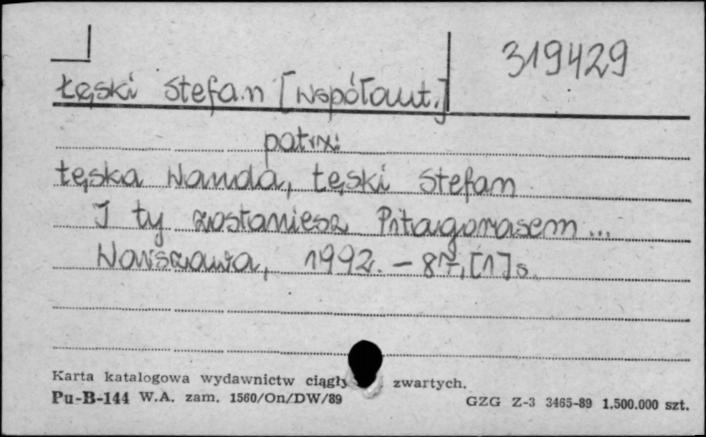 319429
Łęski Stefan [współaut.]
patrz:
Łęska Wanda, Łęski Stefan
I ty zostaniesz Pitagorasem...
Warszawa, 1992. – 87, [1] s.
Karta katalogowa wydawnictw ciągły zwartych.
Pu-B-144 W.A. zam. 1560/On/DW/89 GZG Z-3 3465-89 1.500.000 szt.